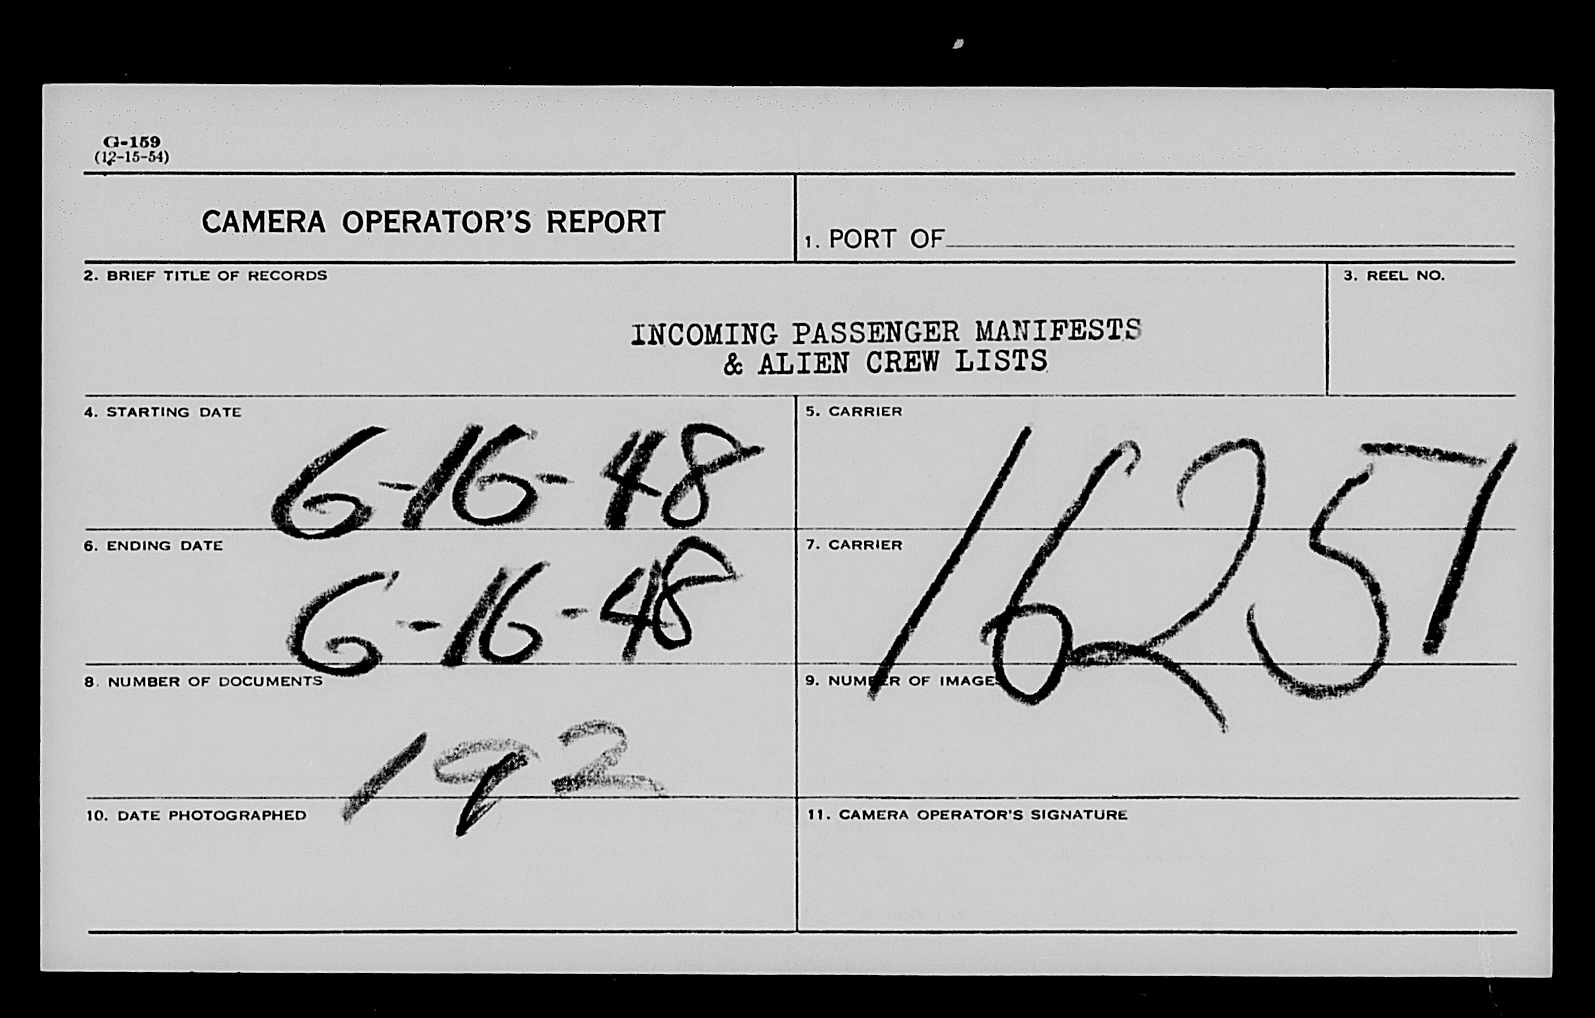 G-159
(12-15-54)
CAMERA OPERATOR'S REPORT
1. PORT OF
2. BRIEF TITLE OF RECORDS
3. REEL NO.
INCOMING PASSENGER MANIFESTS
& ALIEN CREW LISTS
4. STARTING DATE
6-16-48
5. CARRIER
16251
6. ENDING DATE
6-16-48
7. CARRIER
8. NUMBER OF DOCUMENTS
192
9. NUMBER OF IMAGES
10. DATE PHOTOGRAPHED
11. CAMERA OPERATOR'S SIGNATURE